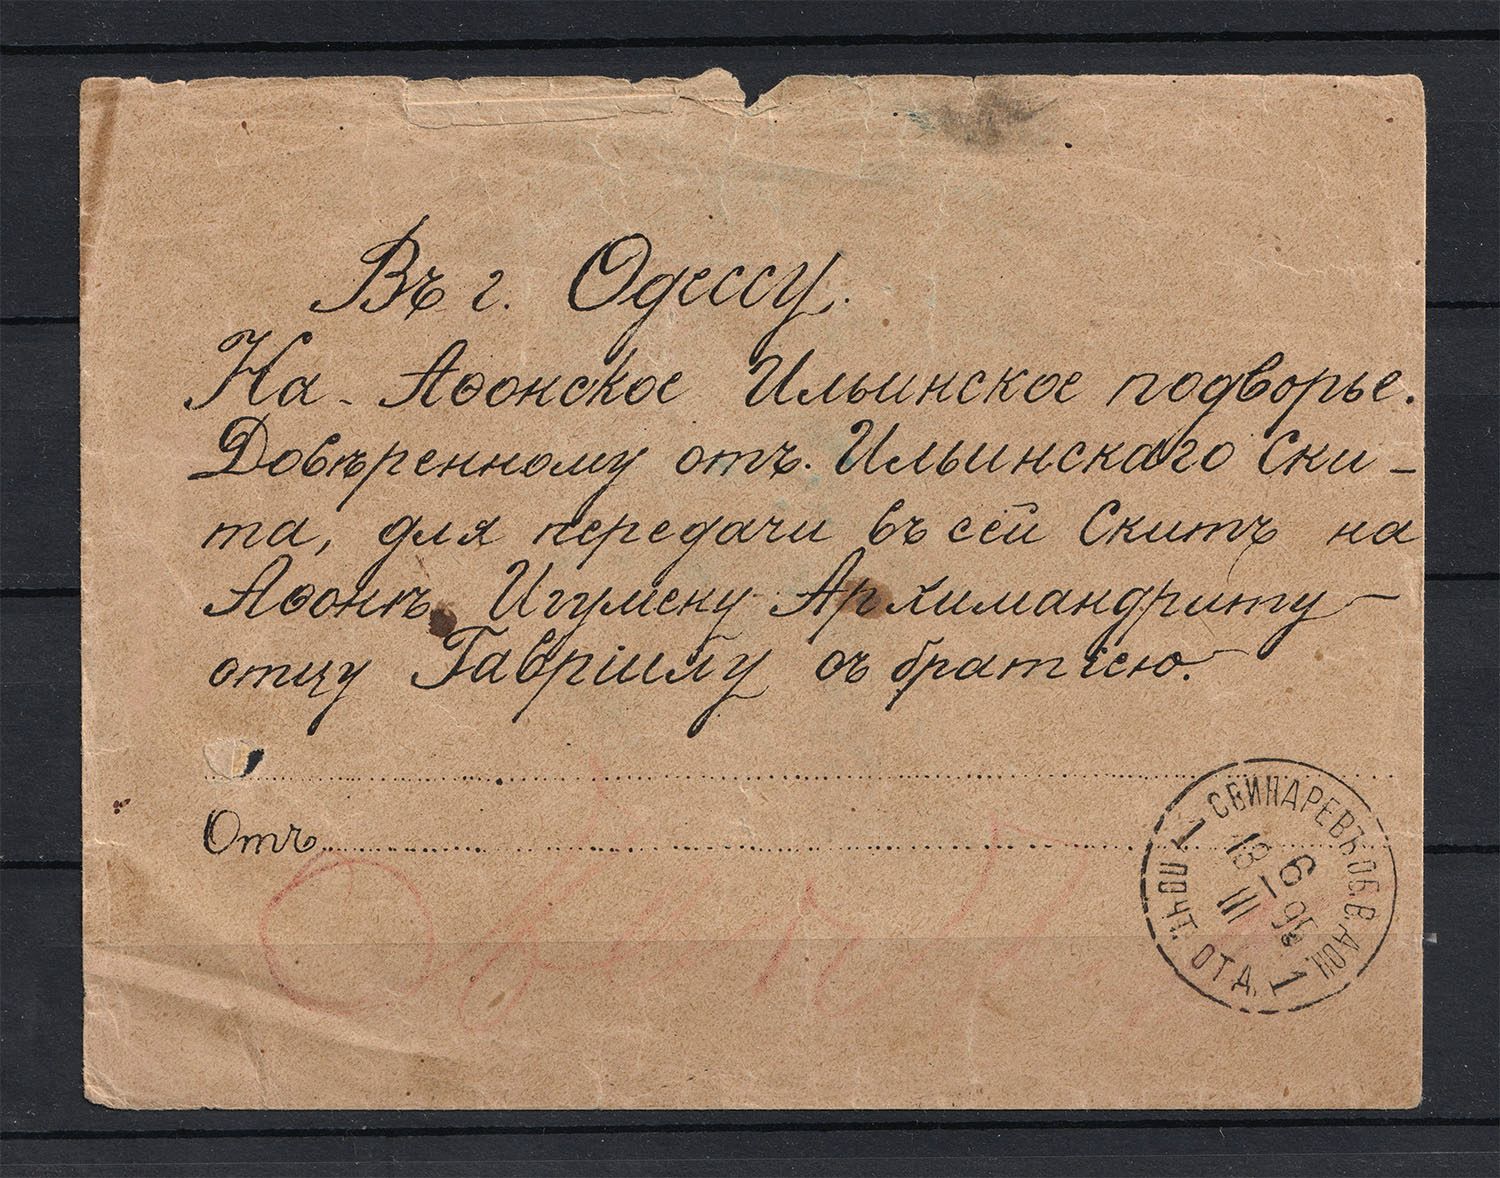 Въ г. Одессу.
На Аѳонское Ильинское подворье.
Довѣренному отъ. Ильинскаго Ски-
та, для передачи въ сей Скитъ на
Аѳонѣ Игумену Архимандриту
отцу Гавріилу съ братіею.
Отъ
СВИНАРЕВЪ ОБ. В. ДОН.
18 6/III 95
1 ПОЧТ. ОТД. 1